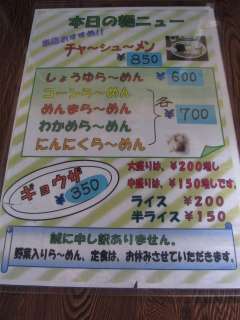 本日の麺ニュー
当店おすすめ!!
チャ～シュ～メン
￥850
しょうゆら～めん ￥600
コーンら～めん
めんまら～めん
わかめら～めん
にんにくら～めん
各 ￥700
ギョウザ
￥350
大盛りは、￥200増し
中盛りは、￥150増しです。
ライス ￥200
半ライス ￥150
誠に申し訳ありません。
野菜入りら～めん、定食は、お休みさせていただきます。